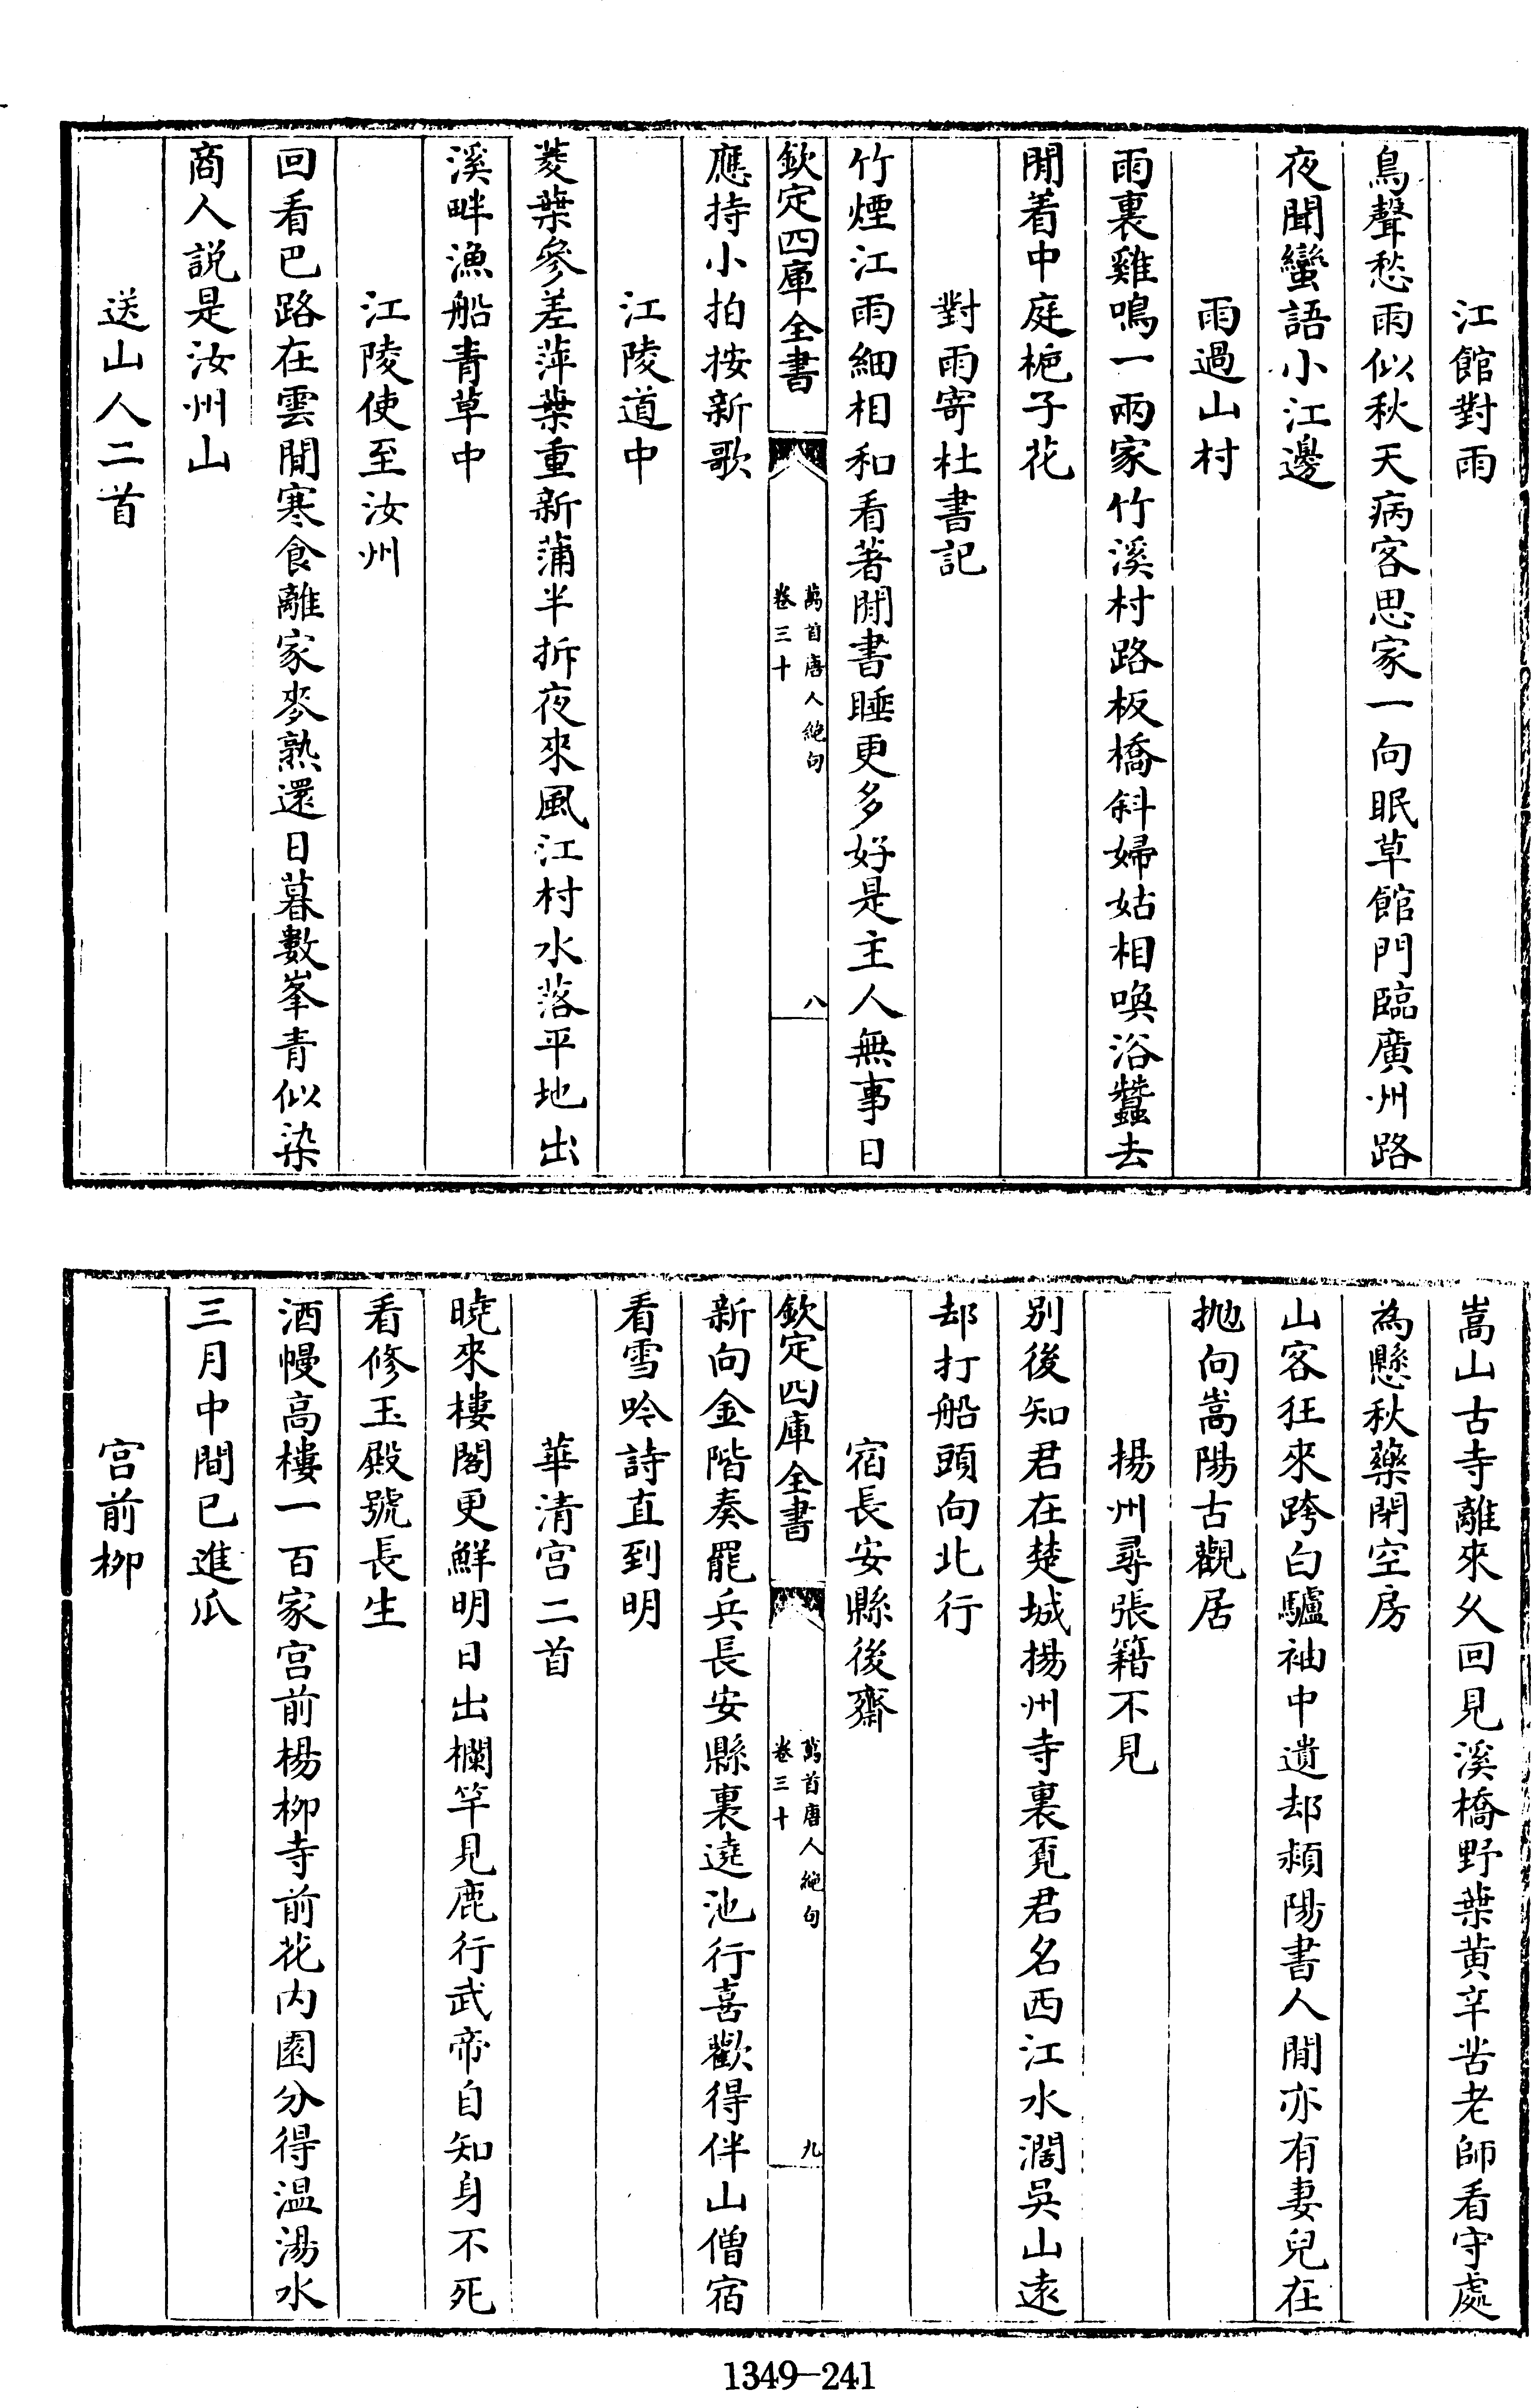 江館對雨
鳥聲愁雨似秋天病客思家一向眠草館門臨廣州路
夜聞蠻語小江邊
雨過山村
雨裏雞鳴一兩家竹溪村路板橋斜婦姑相喚浴蠶去
閒着中庭梔子花
對雨寄杜書記
竹煙江雨細相和看著閒書睡更多好是主人無事日
欽定四庫全書
萬首唐人絶句
卷三十
八
應持小拍按新歌
江陵道中
菱葉參差萍葉重新蒲半折夜來風江村水落平地出
溪畔漁船青草中
江陵使至汝州
回看巴路在雲間寒食離家麥熟還日暮數峯青似染
商人説是汝州山
送山人二首
嵩山古寺離來久回見溪橋野葉黄辛苦老師看守處
為懸秋藥閉空房
山客狂來跨白驢袖中遺却潁陽書人間亦有妻兒在
拋向嵩陽古觀居
揚州尋張籍不見
別後知君在楚城揚州寺裏覓君名西江水濶吳山遠
却打船頭向北行
宿長安縣後齋
欽定四庫全書
萬首唐人絶句
卷三十
九
新向金階奏罷兵長安縣裏遶池行喜歡得伴山僧宿
看雪吟詩直到明
華清宮二首
曉來樓閣更鮮明日出欄竿見鹿行武帝自知身不死
看修玉殿號長生
酒幔高樓一百家宮前楊柳寺前花内園分得温湯水
三月中間已進瓜
宮前柳
1349-241